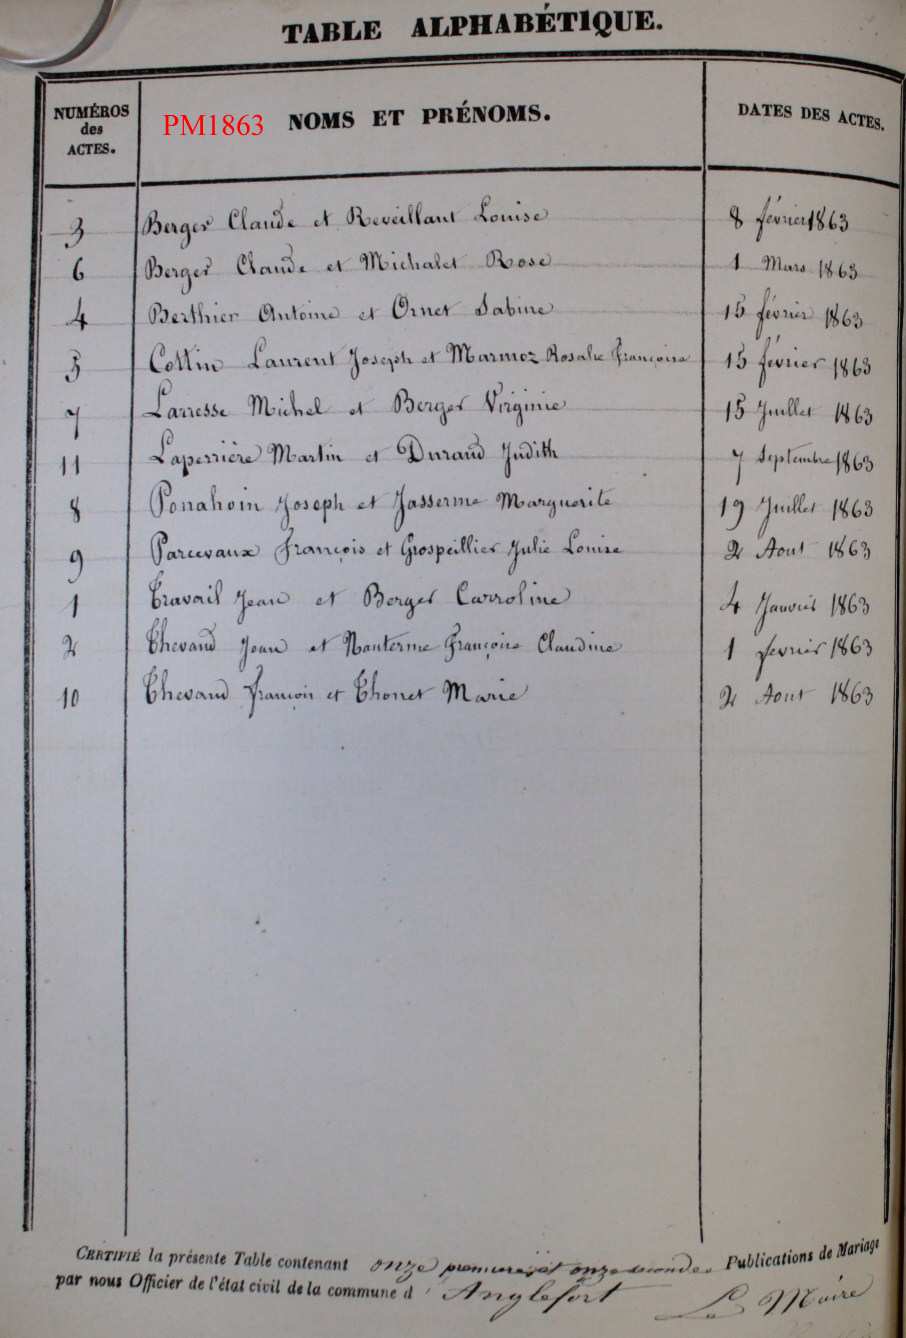 TABLE ALPHABÉTIQUE.
NUMÉROS des ACTES. PM1863 NOMS ET PRÉNOMS. DATES DES ACTES.
3 Berger Claude et Reveillant Louise 8 février 1863
6 Berger Claude et Michalet Rose 1 Mars 1863
4 Berthier Antoine et Ornet Sabine 15 février 1863
5 Cottin Laurent Joseph et Marmoz Rosalie Françoise 15 février 1863
7 Larresse Michel et Berger Virginie 15 Juillet 1863
11 Laperrière Martin et Durand Judith 7 Septembre 1863
8 Ponahoin Joseph et Jasserme Marguerite 19 Juillet 1863
9 Parcevaux François et Grospeillier Julie Louise 2 Aout 1863
1 Travail Jean et Berger Carroline 4 Janvier 1863
2 Thevand Jean et Nanterme Françoise Claudine 1 fevrier 1863
10 Thevand François et Thonet Marie 2 Aout 1863
CERTIFIÉ la présente Table contenant onze premieres et onze secondes Publications de Mariage
par nous Officier de l'état civil de la commune d'Anglefort Le Maire